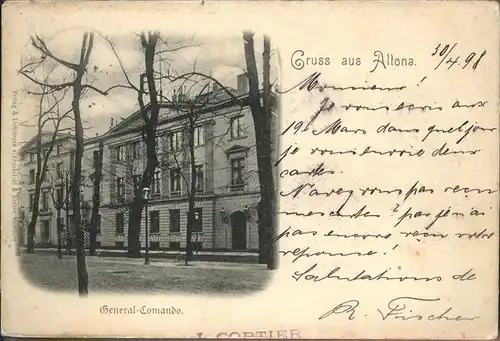 Gruss aus Altona.
30/4.98
Monsieur!
Je vous écris aux
19 Mars dans quel jour
je vous envoie deux
cartes.
N'avez vous pas recu
mes cartes? par je n'ai
pas encore recu votre
réponse!
Salutations de
R. Frischer
General-Comando.
L CORTIER